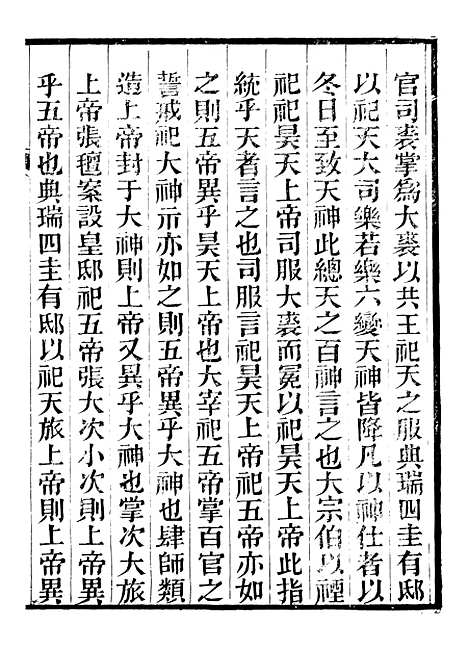 官司裘掌爲大裘以共王祀天之服典瑞四圭有邸
以祀天大司樂若樂六變天神皆降凡以神仕者以
冬日至致天神此總天之百神言之也大宗伯以禋
祀祀昊天上帝司服大裘而冕以祀昊天上帝此指
統乎天者言之也司服言祀昊天上帝祀五帝亦如
之則五帝異乎昊天上帝也大宰祀五帝掌百官之
誓戒祀大神示亦如之則五帝異乎大神也肆師類
造上帝封于大神則上帝又異乎大神也掌次大旅
上帝張氊案設皇邸祀五帝張大次小次則上帝異
乎五帝也典瑞四圭有邸以祀天旅上帝則上帝異